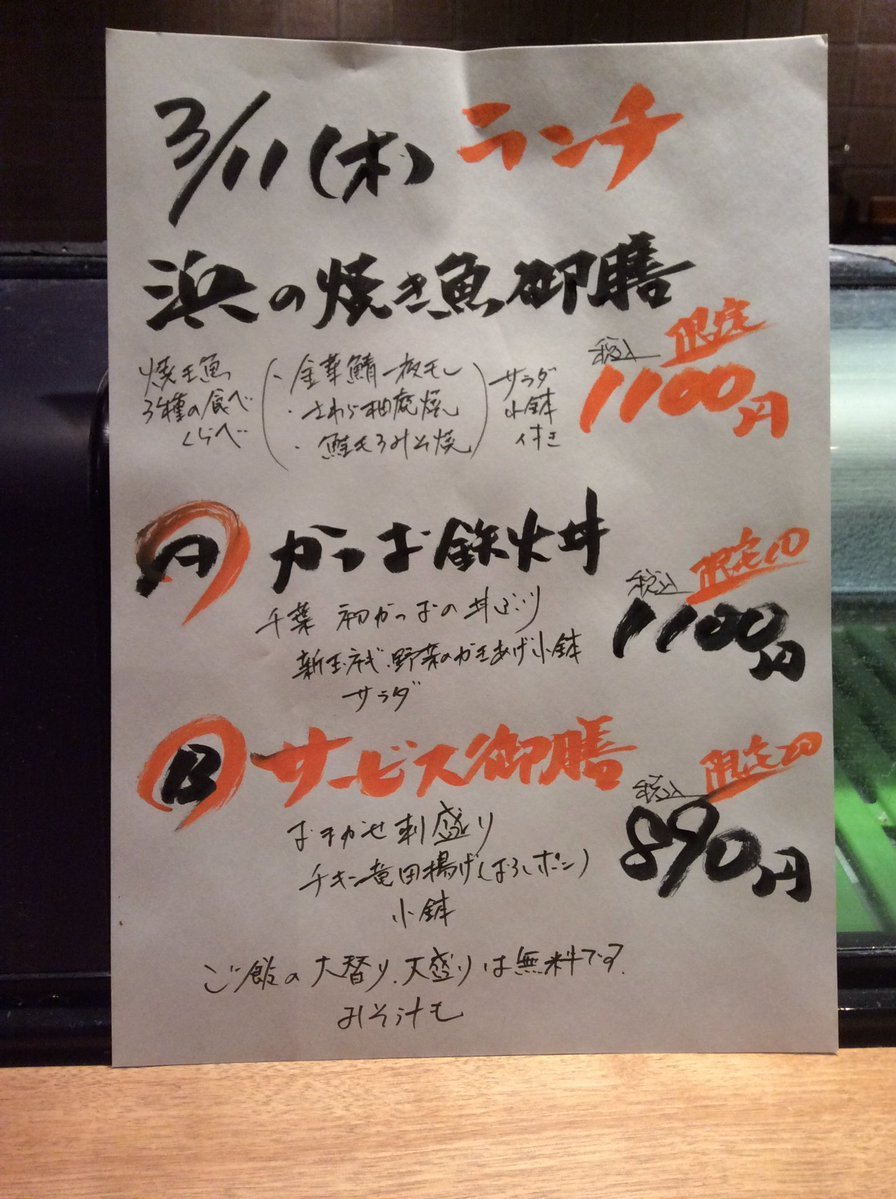 3/11(木) ランチ
浜の焼き魚御膳
限定
税込
1100円
焼き魚
3種の食べ
くらべ
・金華鯖一夜干し
・さわら柚庵焼
・鮭もろみそ焼
サラダ
小鉢
付き
A かつお鉄火丼
限定10
税込
1100円
千葉 初かつおの丼ぶり
新玉ねぎ、野菜のかきあげ小鉢
サラダ
B サービス御膳
限定20
税込
890円
おまかせ刺盛り
チキン竜田揚げ(おろしポン)
小鉢
ご飯の大替り、大盛りは無料です。
みそ汁も